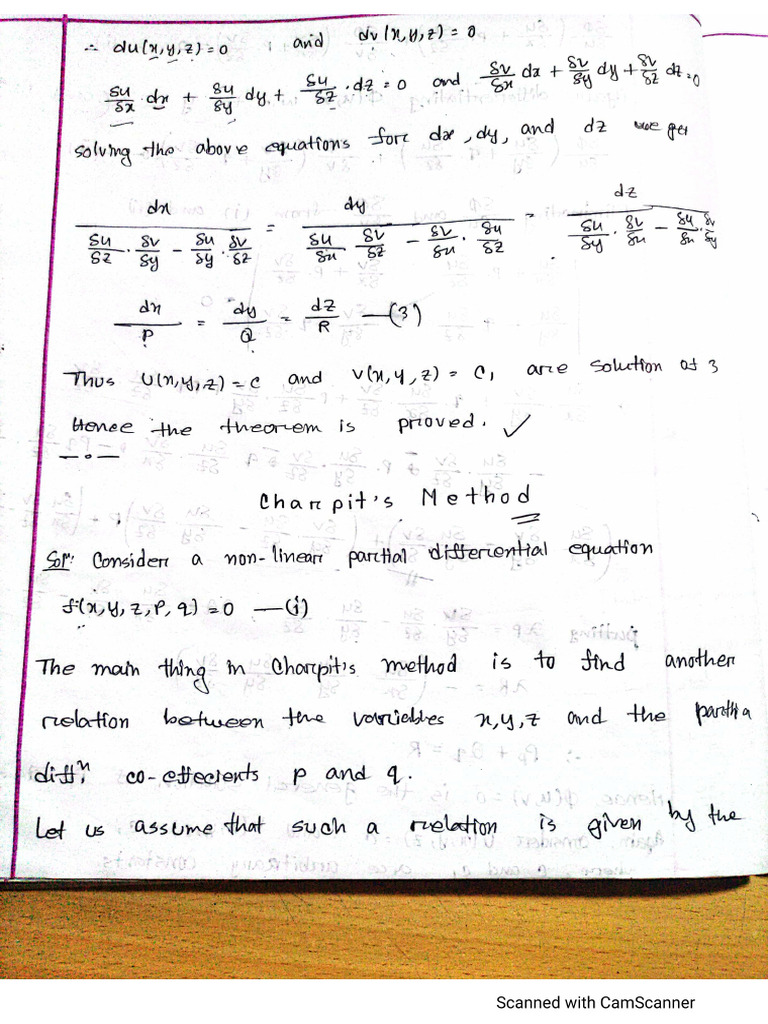 ∴ du(x,y,z)=0 and dv(x,y,z)=0
δu/δx · dx + δu/δy dy + δu/δz · dz = 0 and δv/δx dx + δv/δy dy + δv/δz dz = 0
solving the above equations for dx, dy, and dz we get
dx / (δu/δz · δv/δy − δu/δy · δv/δz) = dy / (δu/δx · δv/δz − δv/δx · δu/δz) = dz / (δu/δy · δv/δx − δu/δx · δv/δy)
dx/P = dy/Q = dz/R —(3)
Thus U(x,y,z) = c and V(x,y,z) = C₁ are solution of 3
Hence the theorem is proved. ✓
Charpit's Method
Solⁿ: Consider a non-linear partial differential equation
f(x,y,z,P,q)=0 —(i)
The main thing in Charpit's method is to find another
relation between the variables x,y,z and the partia
diffⁿ co-effecients p and q.
Let us assume that such a relation is given by the
Scanned with CamScanner